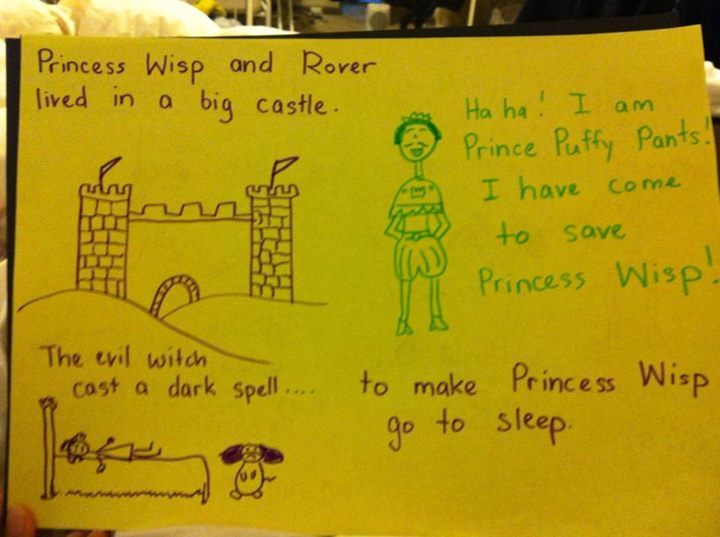 Princess Wisp and Rover
lived in a big castle.
Ha ha! I am
Prince Puffy Pants!
I have come
to save
Princess Wisp!
The evil witch
cast a dark spell....
to make Princess Wisp
go to sleep.